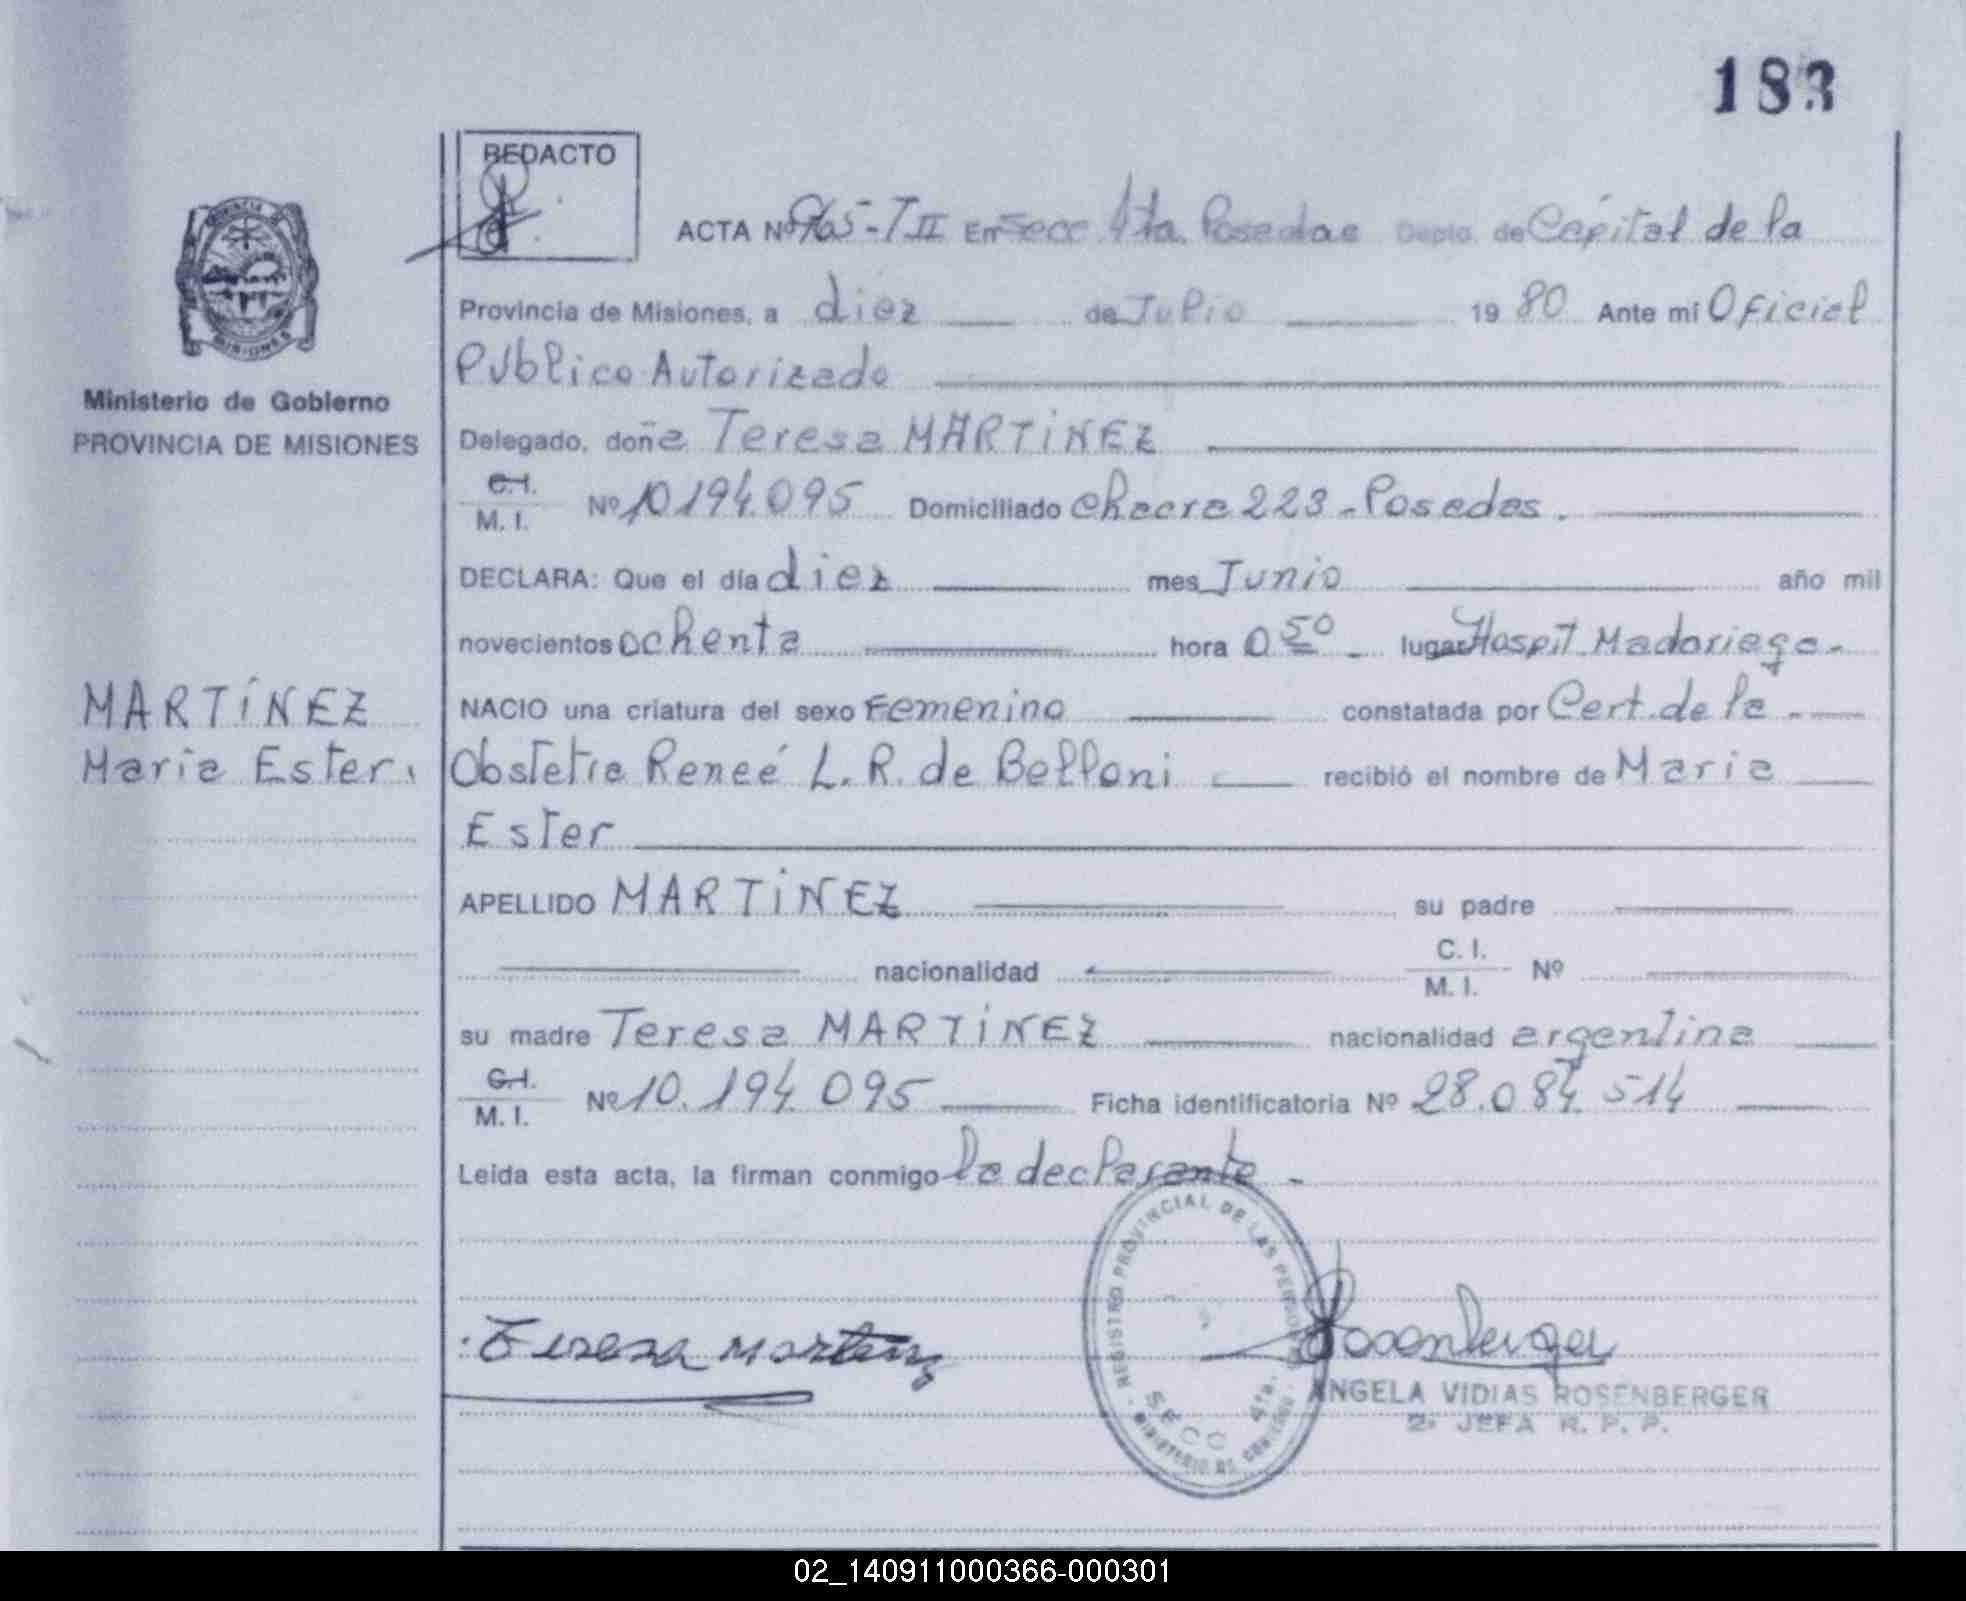 183
REDACTO
ACTA Nº 965-T II En Secc 4ta. Posadas Depto. de Capital de la
Provincia de Misiones, a diez de Julio 1980 Ante mí Oficial
Público Autorizado
Ministerio de Gobierno
PROVINCIA DE MISIONES
Delegado, doña Teresa MARTíNEZ
C.I.
M. I. Nº 10.194.095 Domiciliado Chacra 223 - Posadas.
DECLARA: Que el día diez mes Junio año mil
novecientos ochenta hora 0 50 lugar Hospit. Madariaga.
MARTÍNEZ
María Ester.
NACIO una criatura del sexo Femenino constatada por Cert. de la
Obstetra Reneé L. R. de Belloni recibió el nombre de María
Ester
APELLIDO MARTíNEZ su padre
nacionalidad C. I.
M. I. Nº
su madre Teresa MARTíNEZ nacionalidad argentina
C.I.
M. I. Nº 10.194.095 Ficha identificatoria Nº 28.084.514
Leída esta acta, la firman conmigo la declarante -
REGISTRO PROVINCIAL DE LAS PERSONAS
SECC 4ta.
MINISTERIO DE GOBIERNO
Teresa Martinez
Rosenberger
ANGELA VIDIAS ROSENBERGER
2ª JEFA R. P. P.
PROVINCIA DE
MISIONES
02_140911000366-000301